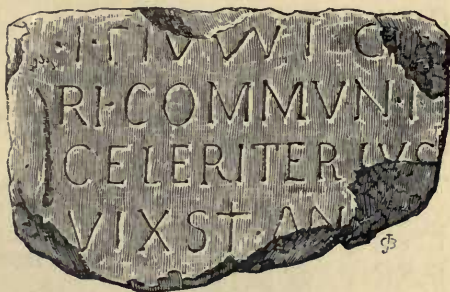 RI·COMMVN·I
CELERITER IVS
VIXST·AN